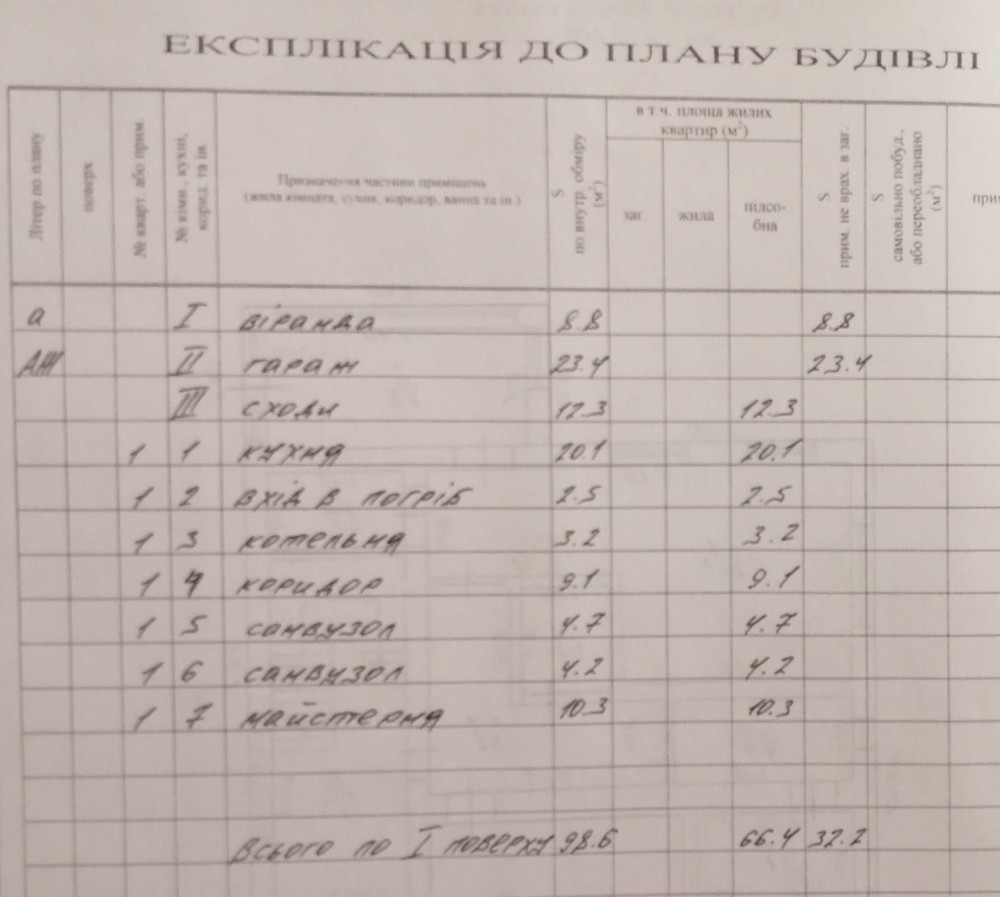 ЕКСПЛІКАЦІЯ ДО ПЛАНУ БУДІВЛІ
Літер по плану
поверх
№ кварт. або прим.
№ кімн., кухні, корид. та ін.
Призначення частини приміщень
(жила кімната, кухня, коридор, ванна та ін.)
S
по внутр. обміру
(м²)
в т.ч. площа жилих
квартир (м²)
заг.
жила
підсо-
бна
S
прим. не врах. в заг.
S
самовільно побуд.,
або переобладнано
(м²)
а I віранда 8.8 8.8
АЖ II гараж 23.4 23.4
III сходи 12.3 12.3
1 1 кухня 20.1 20.1
1 2 вхід в погріб 2.5 2.5
1 3 котельня 3.2 3.2
1 4 коридор 9.1 9.1
1 5 санвузол 4.7 4.7
1 6 санвузол 4.2 4.2
1 7 майстерня 10.3 10.3
Всього по I поверху 98.6 66.4 32.2